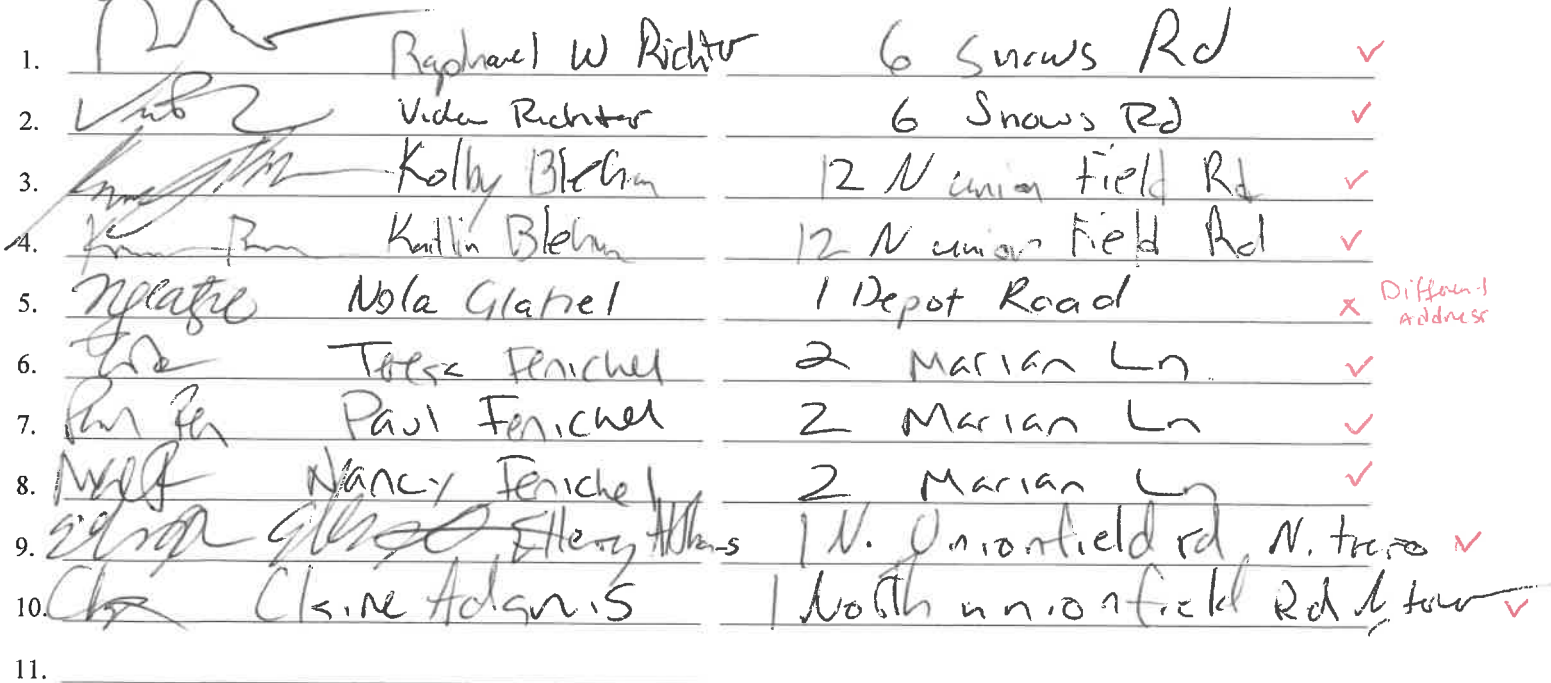 1. Raphael W Richter 6 Snows Rd ✓
2. Vida Richter 6 Snows Rd ✓
3. Kolby Blehm 12 N union Field Rd ✓
4. Kaitlin Blehm 12 N union Field Rd ✓
5. Nola Glatzel 1 Depot Road x Different Address
6. Teresa Fenichel 2 Marian Ln ✓
7. Paul Fenichel 2 Marian Ln ✓
8. Nancy Fenichel 2 Marian Ln ✓
9. Ellery 1 N. Unionfield rd N. truro ✓
10. Claire Adams 1 North unionfield Rd N ✓
11.